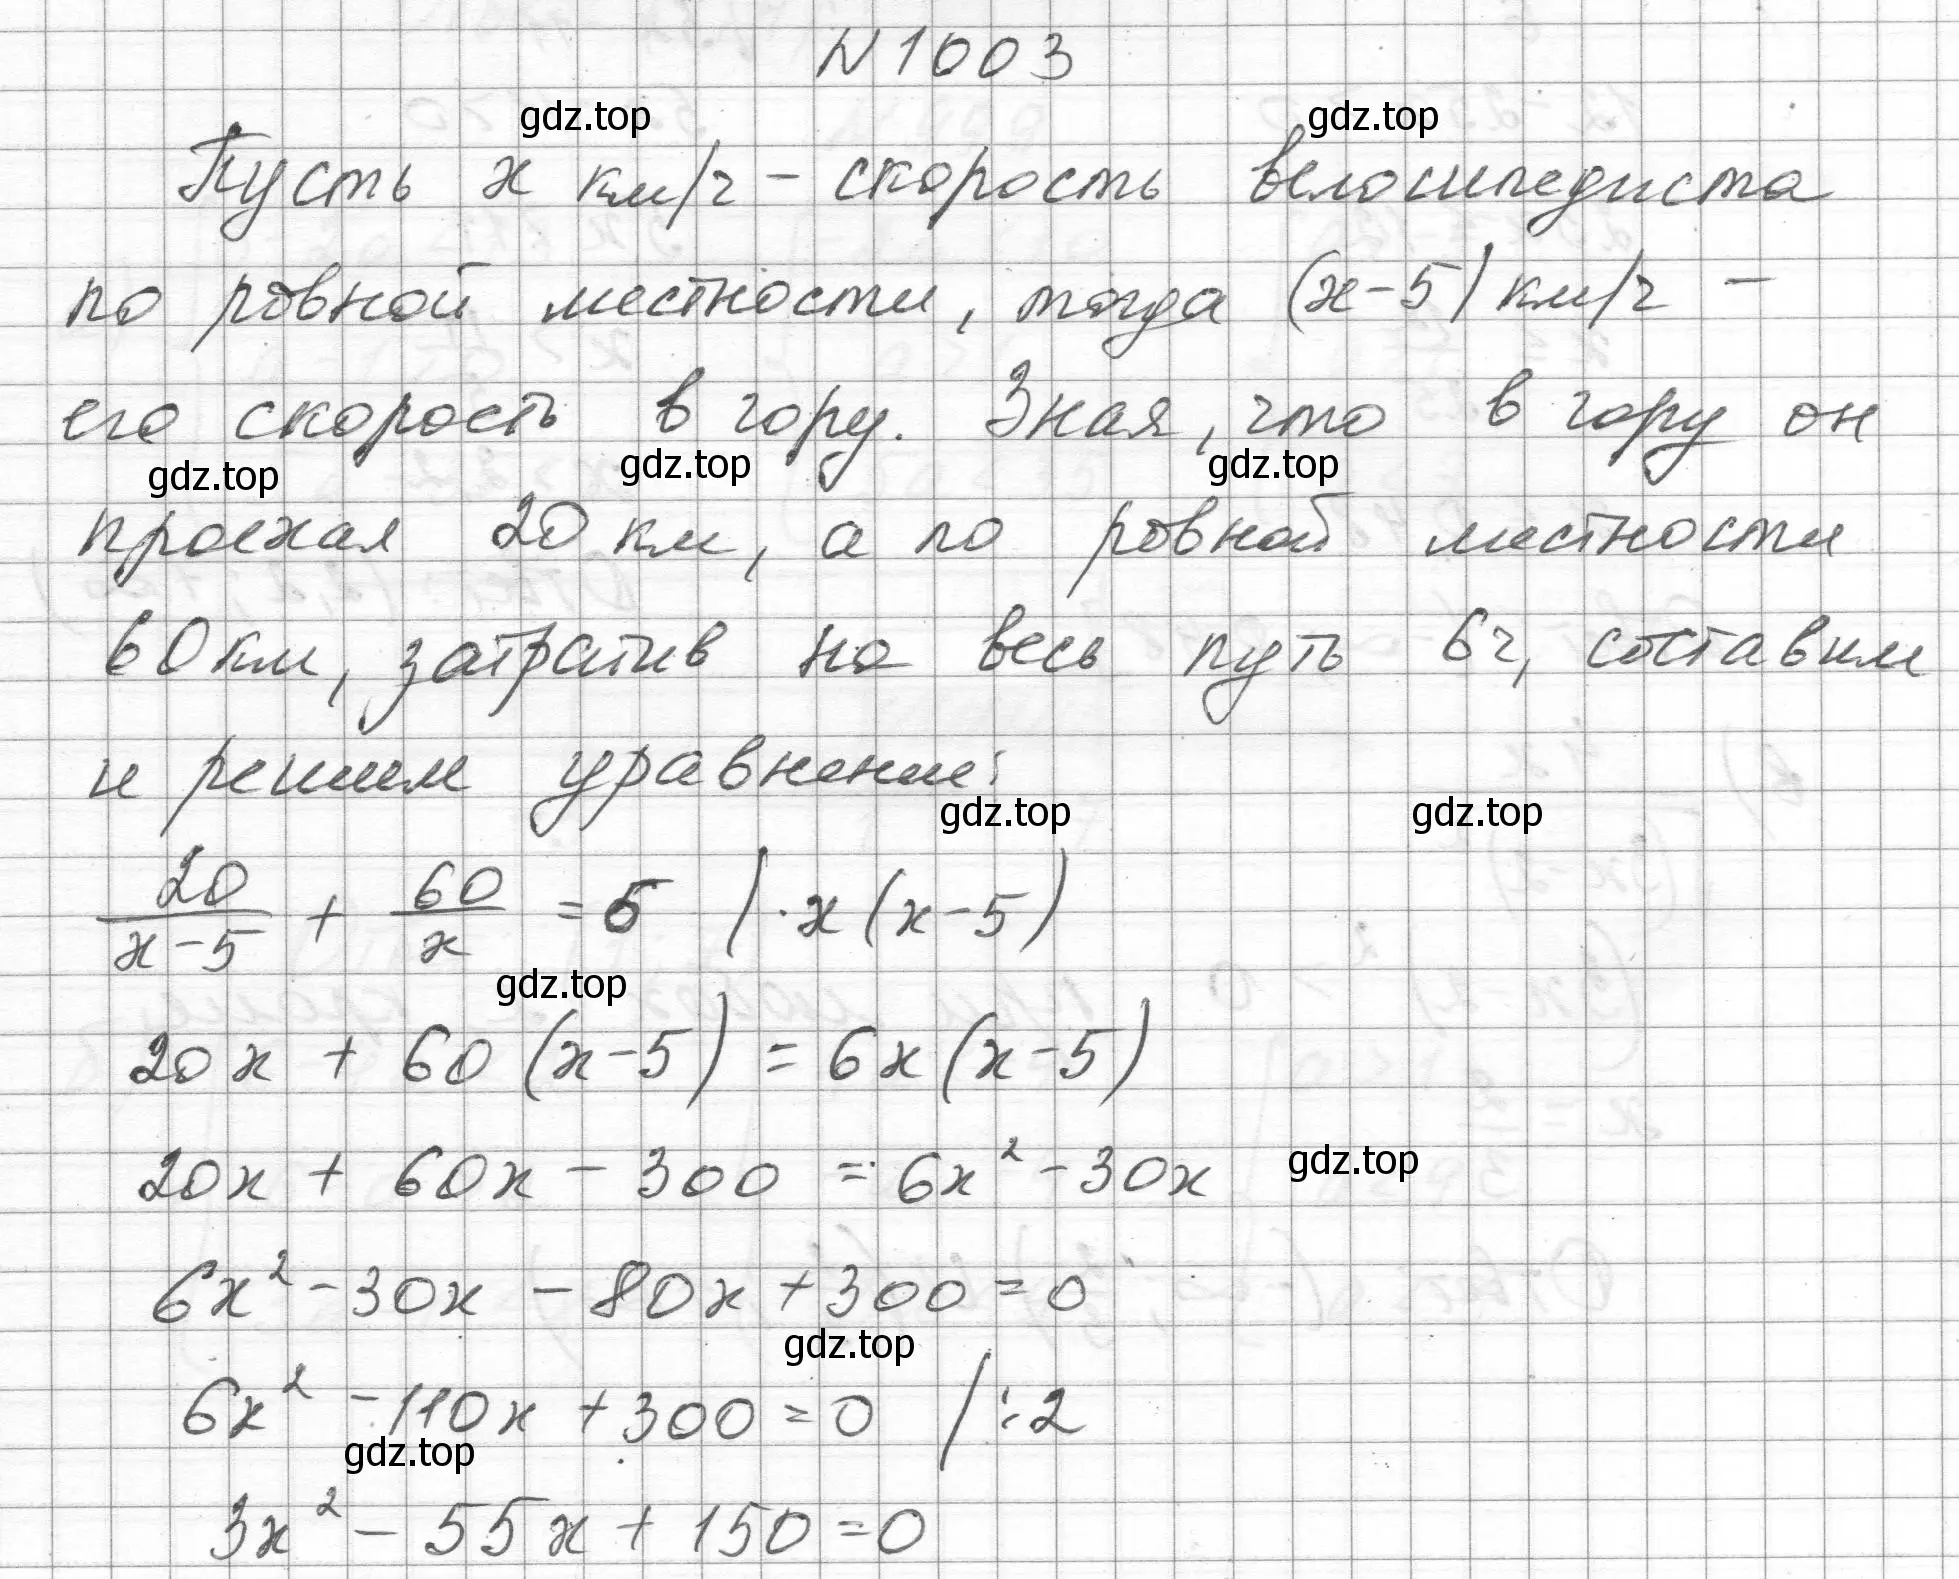 N 1003
gdz.top gdz.top
Пусть x км/ч - скорость велосипедиста
по ровной местности, тогда (x-5) км/ч -
его скорость в гору. Зная, что в гору он
gdz.top gdz.top gdz.top
проехал 20 км, а по ровной местности
60 км, затратив на весь путь 6ч, составим
и решим уравнение:
gdz.top gdz.top
20/(x-5) + 60/x = 6 | ·x(x-5)
gdz.top
20x + 60(x-5) = 6x(x-5)
20x + 60x - 300 = 6x² - 30x gdz.top
6x² - 30x - 80x + 300 = 0
gdz.top
6x² - 110x + 300 = 0 | :2
gdz.top
3x² - 55x + 150 = 0